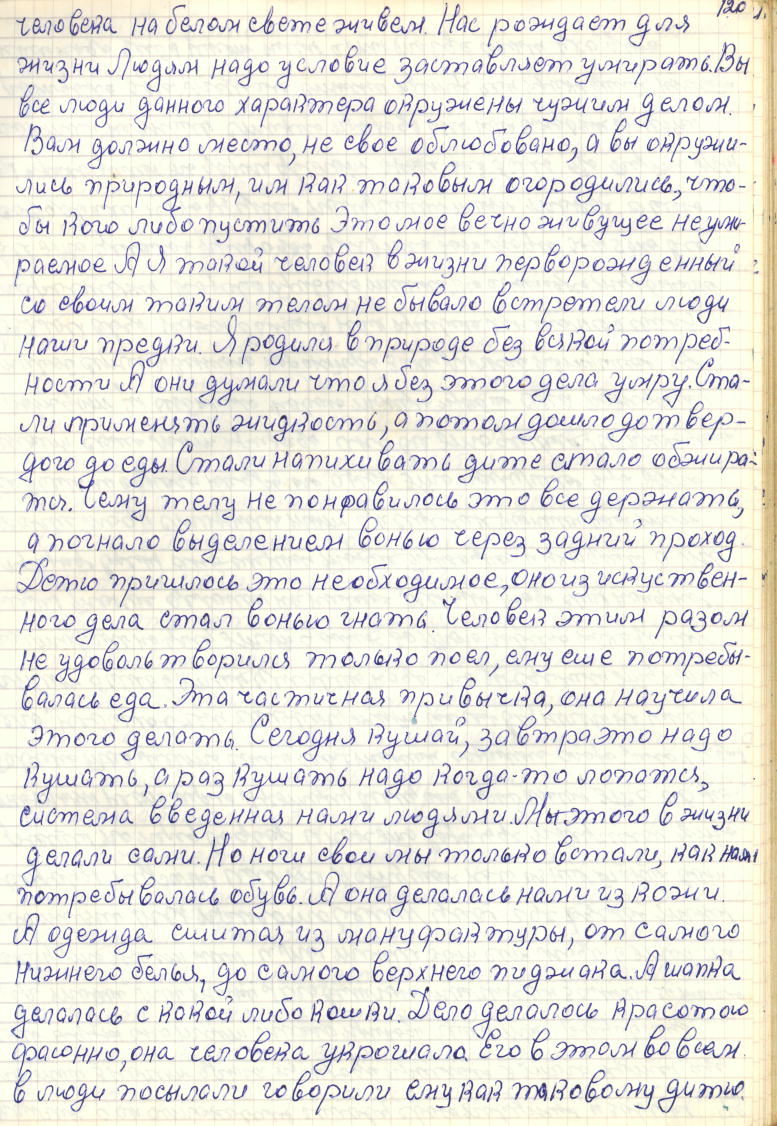 120
человека на белом свете живем. Нас рождает для
жизни Людям надо условие заставляет умирать. Вы
все люди данного характера окружены чужим делом.
Вам должно место, не свое облюбовано, а вы окружи-
лись природным, им как таковым огородились, что-
бы кого либо пустить Это мое вечно живущее неуми-
раемое А Я такой человек в жизни перворожденный
со своим таким телом не бывало встретели люди
наши предки. Я родился в природе без всякой потреб-
ности А они думали что я без этого дела умру. Ста-
ли применять жидкость, а потом дошло до твер-
дого до еды. Стали напихивать дите стало обжира-
тся. Чему телу не понравилось это все держать,
а погнало выделением вонью через задний проход.
Детю пришлось это необходимое, оно из искуствен-
ного дела стал вонью гнать. Человек этим разом
не удовольтворился только поел, ему еше потребы-
валась еда. Эта частичная привычка, она научила
этого делать. Сегодня кушай, завтра это надо
кушать, а раз кушать надо когда-то лопатся,
система введенная нами людями. Мы этого в жизни
делали сами. Но ноги свои мы только встали, как нам
потребывалась обувь. А она делалась нами из кожи.
А одежда сшитая из мануфактуры, от самого
нижнего белья, до самого верхнего пиджака. А шапка
делалась с какой либо кошки. Дело делалось красотою
фасонно, она человека украшала Его в этом во всем
в люди посылали говорили ему как таковому дитю.